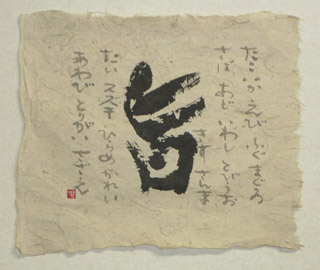 たこ いか えび ふぐ まぐろ
さば あじ いわし とびうお
きす さんま
旨
たい スズキ ひらめ かれい
あわび とりがい さざえ